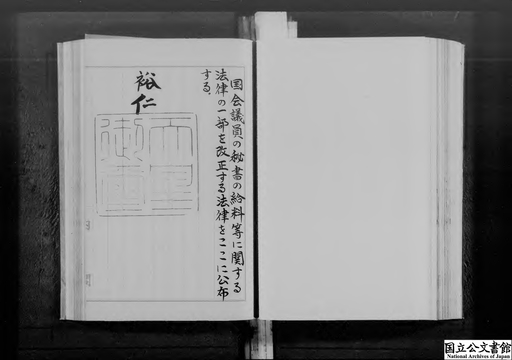 国会議員の秘書の給料等に関する
法律の一部を改正する法律をここに公布
する。
裕仁
天皇御璽
国立公文書館
National Archives of Japan